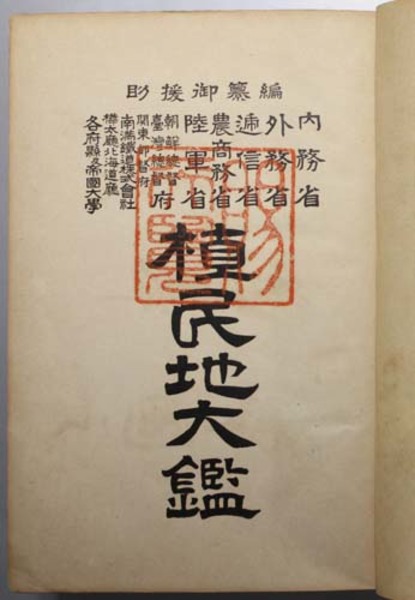 編纂御援助
内務省
外務省
遞信省
農商務省
陸軍省
朝鮮總督
臺灣總督府
関東都督府
南滿鐵道株式會社
樺太廳北海道廳
各府縣及帝國大學
植民地大鑑